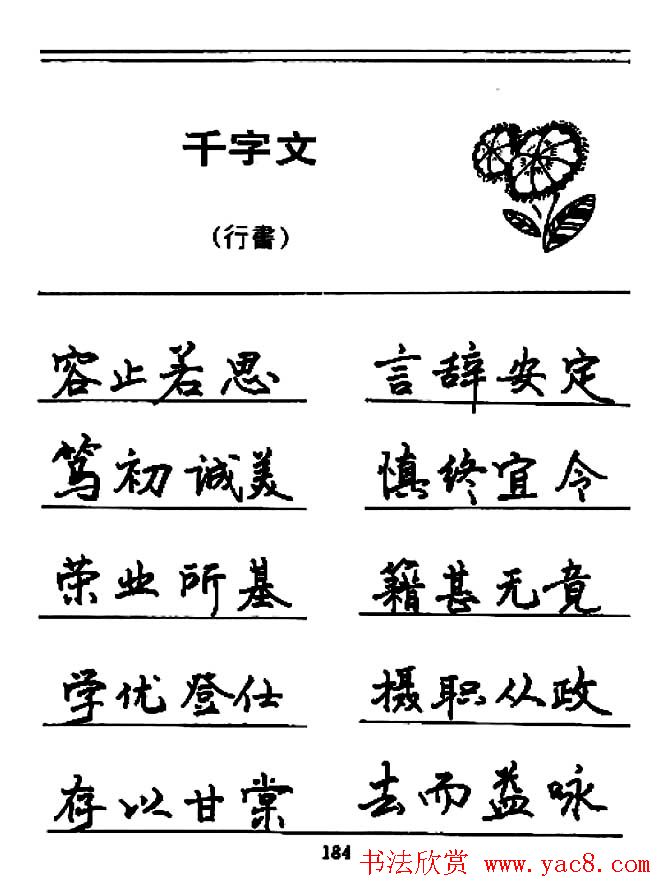 千字文
(行書)
容止若思 言辞安定
笃初诚美 慎终宜令
荣业所基 籍甚无竟
学优登仕 摄职从政
存以甘棠 去而益咏
184
书法欣赏 www.yac8.com